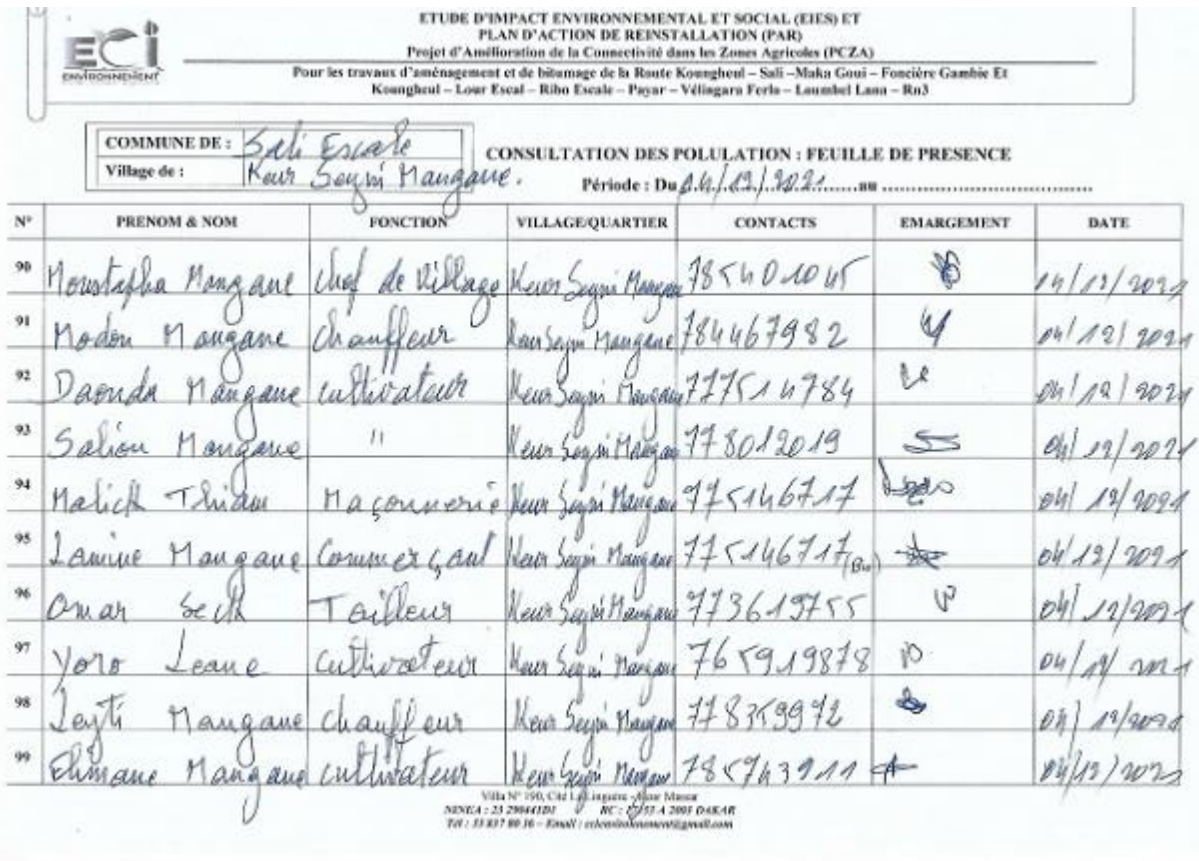 ETUDE D'IMPACT ENVIRONNEMENTAL ET SOCIAL (EIES) ET
PLAN D'ACTION DE REINSTALLATION (PAR)
Projet d'Amélioration de la Connectivité dans les Zones Agricoles (PCZA)
ECI
ENVIRONNEMENT
Pour les travaux d'aménagement et de bitumage de la Route Koungheul – Sali –Maka Goui – Foncière Gambie Et
Koungheul – Lour Escal – Ribo Escale – Payar – Vélingara Ferlo – Loumbel Lana – Rn3
COMMUNE DE : Sali Escale
Village de : Keur Seyni Mangane.
CONSULTATION DES POLULATION : FEUILLE DE PRESENCE
Période : Du 04/12/2021 au
N° PRENOM & NOM FONCTION VILLAGE/QUARTIER CONTACTS EMARGEMENT DATE
90 Moustapha Mangane Chef de Village Keur Seyni Mangane 785401045 04/12/2021
91 Modou Mangane Chauffeur Keur Seyni Mangane 784467982 04/12/2021
92 Daouda Mangane cultivateur Keur Seyni Mangane 777514784 04/12/2021
93 Saliou Mangane " Keur Seyni Mangane 778012019 04/12/2021
94 Malick Thiam Maçonnerie Keur Seyni Mangane 775146717 04/12/2021
95 Lamine Mangane Commerçant Keur Seyni Mangane 775146717 04/12/2021
96 Omar Seck Tailleur Keur Seyni Mangane 773619755 04/12/2021
97 Yoro Leane cultivateur Keur Seyni Mangane 765919878 04/12/2021
98 Leyti Mangane chauffeur Keur Seyni Mangane 778359972 04/12/2021
99 Elimane Mangane cultivateur Keur Seyni Mangane 785743911 04/12/2021
Villa N° 190, Cité
DAKAR
Tél : 33 837 80 36 – Email : ecienvironnement@gmail.com